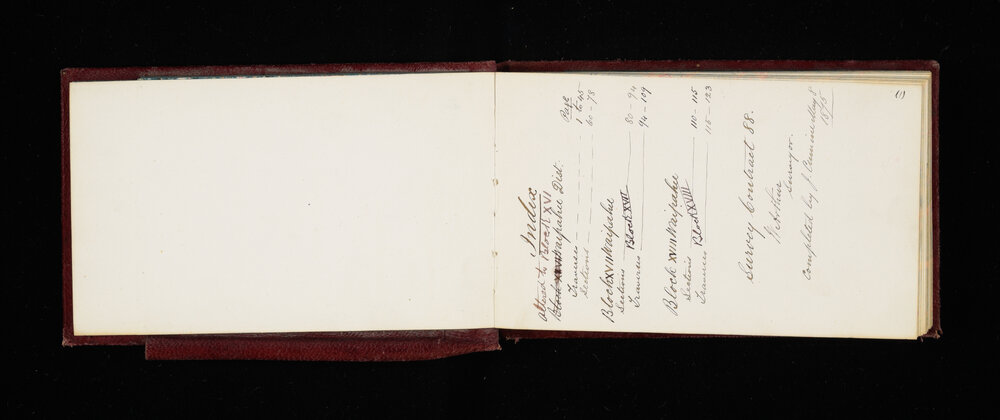 (1)
Index
altered to Block XVI
Block Waipahee Dist. Page
Traverses 1 to 45
Sections 60 - 78
Block XVII Waipahee
Sections Block XVII 80 - 94
Traverses 94 - 109
Block XVIII Waipahee
Sections 110 - 115
Traverses Block XVIII 115 - 123
Survey Contract 88.
W. Arthur
Surveyor.
Completed by J.